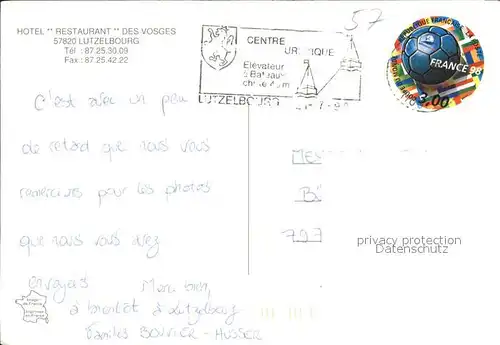 HOTEL ** RESTAURANT ** DES VOSGES
57820 LUTZELBOURG
Tél : 87.25.30.09
Fax : 87.25.42.22
57
CENTRE
Elévateur
à Bateaux
LUTZELBOURG
REPUBLIQUE FRANÇAISE LA POSTE
FRANCE 98
3,00
C'est avec un peu
de retard que nous vous
remercions pour les photos
que nous vous avez
envoyés
Merci bien,
à bientôt à Lutzelbourg
Familles BOUVIER - HUSSER
privacy protection
Datenschutz